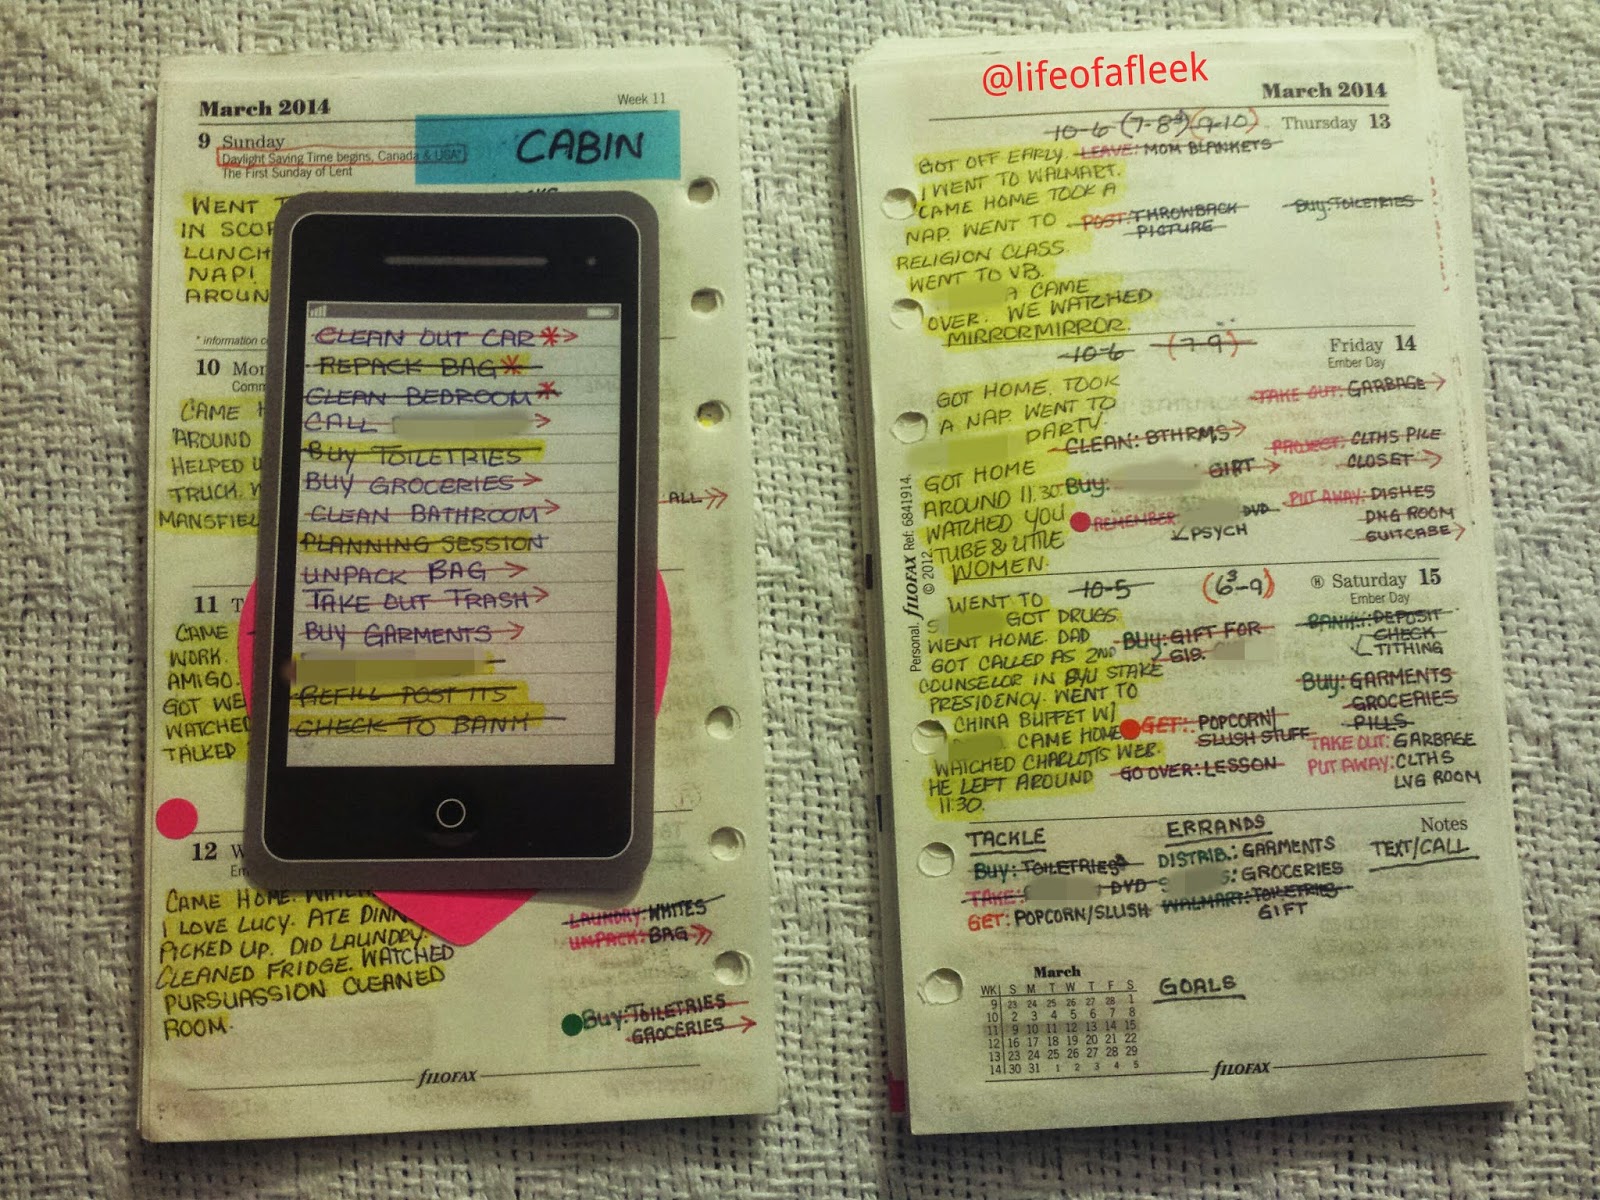 March 2014
Week 11
9 Sunday
Daylight Saving Time begins, Canada & USA*
The First Sunday of Lent
CABIN
WENT
IN
LUNCH
NAP!
AROUN
* information
10 Mon
Comm
CAME
AROUND
HELPED
TRUCK.
MANSFIEL
ALL
11 T
CAME
WORK.
AMIGO.
GOT WE
WATCHED
TALKED
12 W
CAME HOME.
I LOVE LUCY. ATE DINN
PICKED UP. DID LAUNDRY.
CLEANED FRIDGE. WATCHED
PURSUASSION CLEANED
ROOM.
LAUNDRY: WHITES
UNPACK: BAG
BUY: TOILETRIES
GROCERIES
FILOFAX
CLEAN OUT CAR *
REPACK BAG *
CLEAN BEDROOM *
CALL
BUY TOILETRIES
BUY GROCERIES
CLEAN BATHROOM
PLANNING SESSION
UNPACK BAG
TAKE OUT TRASH
BUY GARMENTS
REFILL POST ITS
CHECK TO BANK
@lifeofafleek
March 2014
Thursday 13
10-6 (7-8³) (9-10)
GOT OFF EARLY.
I WENT TO WALMART.
CAME HOME TOOK A
NAP. WENT TO
RELIGION CLASS.
WENT TO VB.
A CAME
OVER. WE WATCHED
MIRRORMIRROR.
LEAVE: MOM BLANKETS
POST: THROWBACK
PICTURE
BUY: TOILETRIES
Friday 14
Ember Day
10-6 (7-9)
GOT HOME. TOOK
A NAP. WENT TO
PARTY.
GOT HOME
AROUND 11:30.
WATCHED YOU
TUBE & LITTLE
WOMEN.
CLEAN: BTHRMS
BUY:
GIRT
REMEMBER
DVD
PSYCH
TAKE OUT: GARBAGE
PROJECT: CLTHS PILE
CLOSET
PUT AWAY: DISHES
DNG ROOM
SUITCASE
Personal. FILOFAX Ref: 6841914.
© 2012
Saturday 15
Ember Day
10-5 (6³-9)
WENT TO
S GOT DRUGS
WENT HOME. DAD
GOT CALLED AS 2ND
COUNSELOR IN BYU STAKE
PRESIDENCY. WENT TO
CHINA BUFFET W/
CAME HOME
WATCHED CHARLOTTS WEB.
HE LEFT AROUND
11:30.
BUY: GIFT FOR
GET: POPCORN/
SLUSH STUFF
GO OVER: LESSON
BANK: DEPOSIT
CHECK
TITHING
BUY: GARMENTS
GROCERIES
PILLS
TAKE OUT: GARBAGE
PUT AWAY: CLTHS
LVG ROOM
TACKLE
BUY: TOILETRIES
TAKE: DVD
GET: POPCORN/SLUSH
ERRANDS
DISTRIB.: GARMENTS
: GROCERIES
WALMART: TOILETRIES
GIFT
Notes
TEXT/CALL
GOALS
March
WK S M T W T F S
9 23 24 25 26 27 28 1
10 2 3 4 5 6 7 8
11 9 10 11 12 13 14 15
12 16 17 18 19 20 21 22
13 23 24 25 26 27 28 29
14 30 31 1 2 3 4 5
FILOFAX